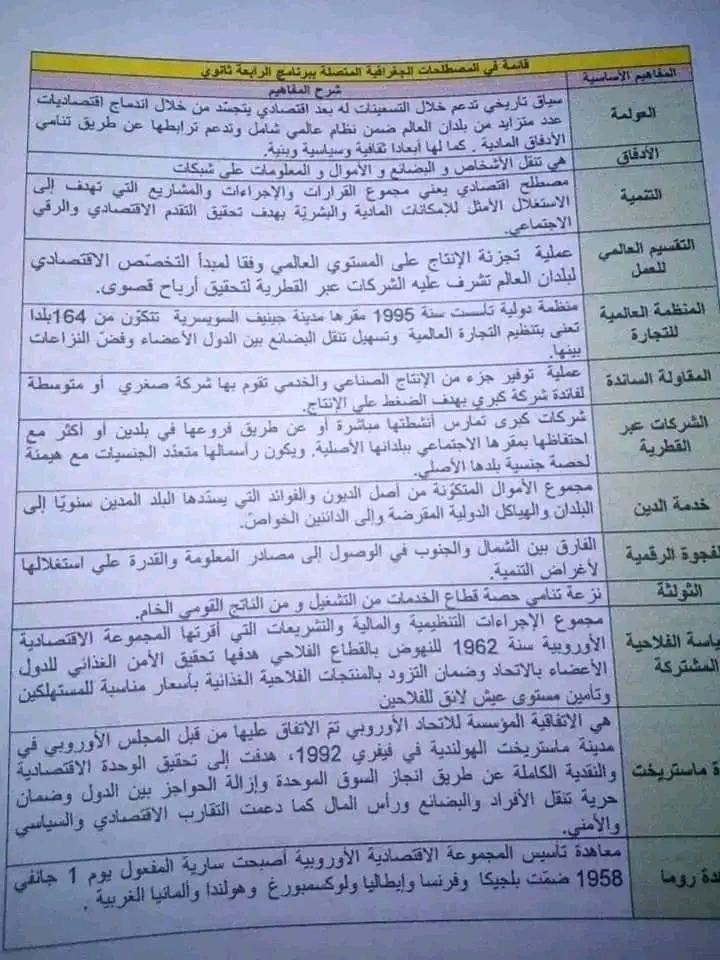 قائمة في المصطلحات الجغرافية المتصلة ببرنامج الرابعة ثانوي
المفاهيم الأساسية
شرح المفاهيم
العولمة
سياق تاريخي تدعم خلال التسعينات له بعد اقتصادي يتجسّد من خلال اندماج اقتصاديات
عدد متزايد من بلدان العالم ضمن نظام عالمي شامل وتدعم ترابطها عن طريق تنامي
الأدفاق المادية . كما لها أبعادا ثقافية وسياسية وبنية.
الأدفاق
هي تنقل الأشخاص و البضائع و الأموال و المعلومات على شبكات
التنمية
مصطلح اقتصادي يعني مجموع القرارات والإجراءات والمشاريع التي تهدف إلى
الاستغلال الأمثل للإمكانات المادية والبشريّة بهدف تحقيق التقدم الاقتصادي والرقي
الاجتماعي.
التقسيم العالمي
للعمل
عملية تجزئة الإنتاج على المستوي العالمي وفقا لمبدأ التخصّص الاقتصادي
لبلدان العالم تشرف عليه الشركات عبر القطرية لتحقيق أرباح قصوى.
المنظمة العالمية
للتجارة
منظمة دولية تأسست سنة 1995 مقرها مدينة جينيف السويسرية تتكوّن من 164بلدا
تعنى بتنظيم التجارة العالمية وتسهيل تنقل البضائع بين الدول الأعضاء وفضّ النزاعات
بينها.
المقاولة الساندة
عملية توفير جزء من الإنتاج الصناعي والخدمي تقوم بها شركة صغري أو متوسطة
لفائدة شركة كبري بهدف الضغط علي الإنتاج.
الشركات عبر
القطرية
شركات كبرى تمارس أنشطتها مباشرة أو عن طريق فروعها في بلدين أو أكثر مع
احتفاظها بمقرها الاجتماعي ببلدانها الأصلية. ويكون رأسمالها متعدّد الجنسيات مع هيمنة
لحصة جنسية بلدها الأصلي.
خدمة الدين
مجموع الأموال المتكوّنة من أصل الديون والفوائد التي يسدّدها البلد المدين سنويّا إلى
البلدان والهياكل الدولية المقرضة وإلى الدائنين الخواصّ.
لفجوة الرقمية
الفارق بين الشمال والجنوب في الوصول إلى مصادر المعلومة والقدرة علي استغلالها
لأغراض التنمية.
الثولثة
نزعة تنامي حصة قطاع الخدمات من التشغيل و من الناتج القومي الخام.
ياسة الفلاحية
المشتركة
مجموع الإجراءات التنظيمية والمالية والتشريعات التي أقرتها المجموعة الاقتصادية
الأوروبية سنة 1962 للنهوض بالقطاع الفلاحي هدفها تحقيق الأمن الغذائي للدول
الأعضاء بالاتحاد وضمان التزود بالمنتجات الفلاحية الغذائية بأسعار مناسبة للمستهلكين
وتأمين مستوى عيش لائق للفلاحين
ة ماستريخت
هي الاتفاقية المؤسسة للاتحاد الأوروبي تمّ الاتفاق عليها من قبل المجلس الأوروبي في
مدينة ماستريخت الهولندية في فيفري 1992، هدفت إلى تحقيق الوحدة الاقتصادية
والنقدية الكاملة عن طريق انجاز السوق الموحدة وإزالة الحواجز بين الدول وضمان
حرية تنقل الأفراد والبضائع ورأس المال كما دعمت التقارب الاقتصادي والسياسي
والأمني.
دة روما
معاهدة تأسيس المجموعة الاقتصادية الأوروبية أصبحت سارية المفعول يوم 1 جانفي
1958 ضمّت بلجيكا وفرنسا وإيطاليا ولوكسمبورغ وهولندا وألمانيا الغربية .